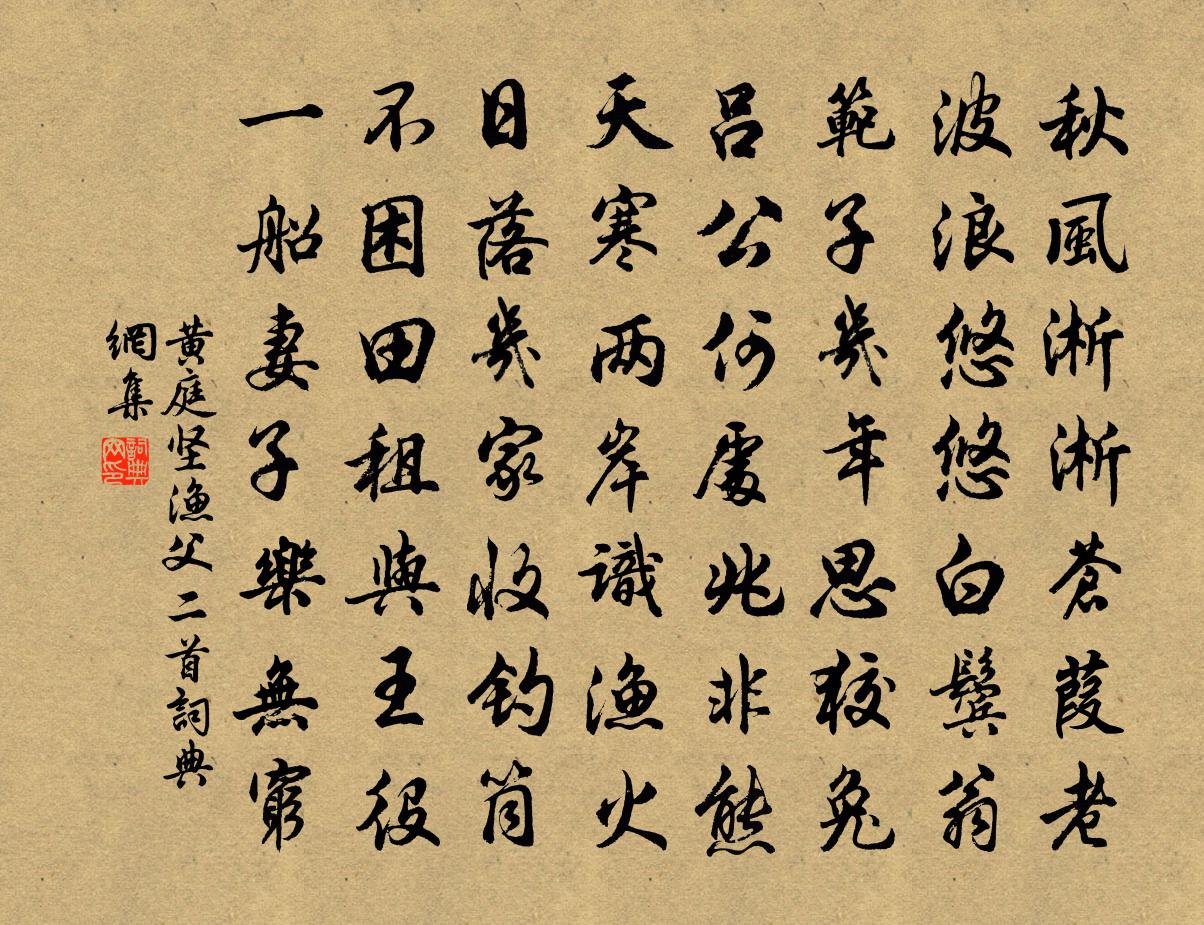 秋風淅淅蒼葭老
波浪悠悠白鬢翁
範子幾年思狡兔
呂公何處兆非熊
天寒兩岸識漁火
日落幾家收釣筒
不困田租與王役
一船妻子樂無窮
黃庭坚漁父二首詞典
網集
詞典
网印